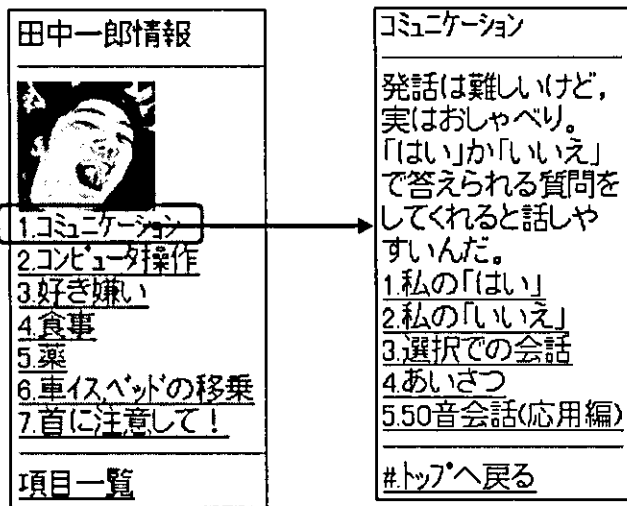 田中一郎情報
1.コミュニケーション
2.コンピュータ操作
3.好き嫌い
4.食事
5.薬
6.車イス,ベッドの移乗
7.首に注意して!
項目一覧
コミュニケーション
発話は難しいけど,
実はおしゃべり。
「はい」か「いいえ」
で答えられる質問を
してくれると話しや
すいんだ。
1.私の「はい」
2.私の「いいえ」
3.選択での会話
4.あいさつ
5.50音会話(応用編)
#.トップへ戻る